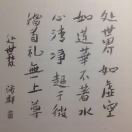 處世界如虛空
如蓮華不著水
心清淨超於彼
稽首禮無上尊
處世